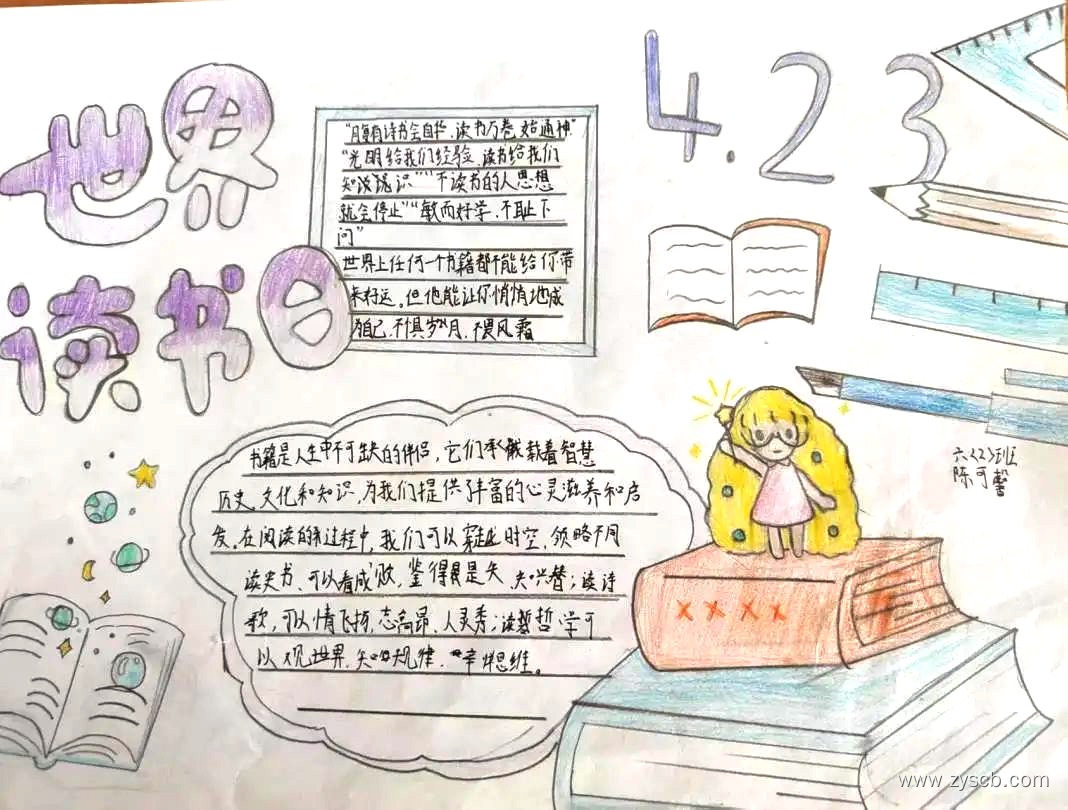 世界
读书日
4.23
"腹有诗书气自华,读书万卷始通神"
"光明给我们经验,读书给我们
知识" "不读书的人思想
就会停止" "敏而好学,不耻下
问"
世界上任何一个书籍都不能给你带
来好运,但他能让你悄悄地成
为自己,不惧岁月,不畏风霜
书籍是人生中不可缺的伴侣,它们承载着智慧
历史,文化和知识,为我们提供了丰富的心灵滋养和启
发。在阅读的过程中,我们可以穿越时空,领略不同
读史书,可以看成败,鉴得失,知兴替;读诗
歌,可以情飞扬,志高昂,人灵秀;读哲学可
以观世界,知规律,思维。
六(2)班
陈可馨
XXXX
www.zyscb.com